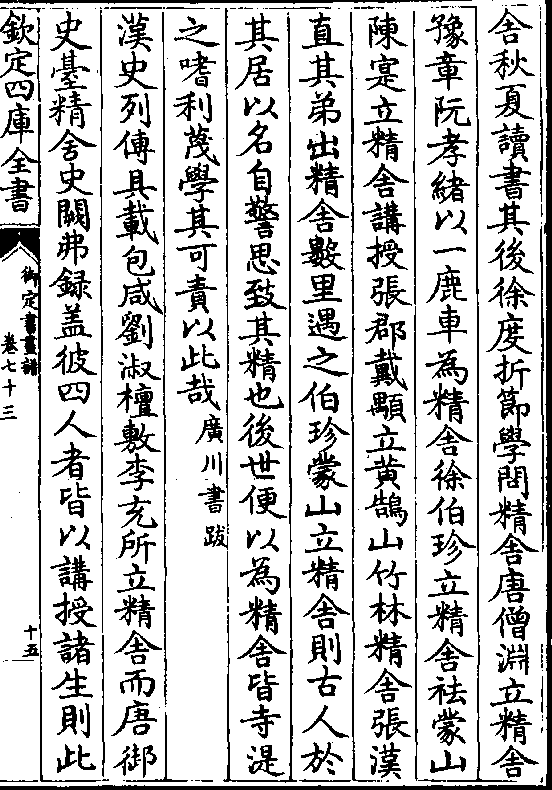 舎秋夏讀書其後徐度折節學問精舎唐僧淵立精舎
豫章阮孝緒以一鹿車為精舎徐伯珍立精舎祛蒙山
陳寔立精舎講授張郡戴顒立黄鵠山竹林精舎張漢
直其弟出精舎數里遇之伯珍蒙山立精舎則古人於
其居以名自警思致其精也後世便以為精舎皆寺湜
之嗜利蔑學其可責以此哉廣川書跋
漢史列傳具載包咸劉淑檀敷李充所立精舎而唐御
史臺精舎史闕弗録盖彼四人者皆以講授諸生則此
欽定四庫全書
御定書畫譜
卷七十三
十五